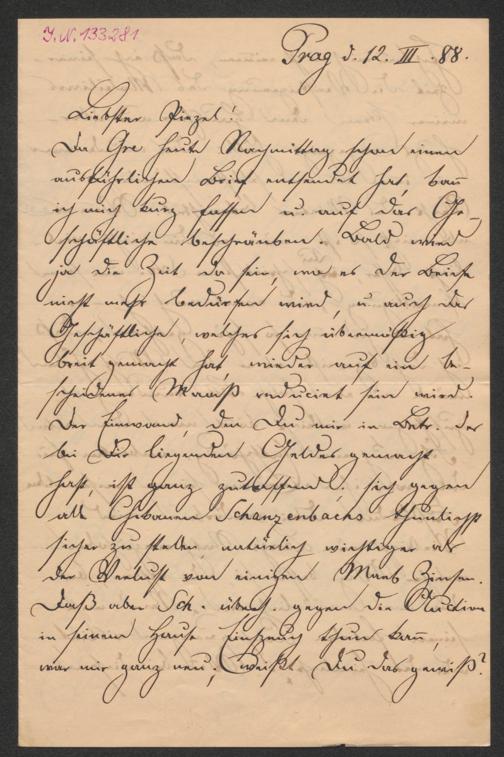 I.N. 133.281
Prag d. 12. III. 88.
Liebster Piezel!
Da Gre heute Nachmittag schon einen
ausführlichen Brief entsendet hat, kann
ich mich kurz fassen u. auf das Ge-
schäftliche beschränken. Bald wird
ja die Zeit da sein, wo es der Briefe
nicht mehr bedürfen wird, u. auch das
Geschäftliche, welches sich übermäßig
breit gemacht hat, wieder auf ein be-
scheidenes Maaß reducirt sein wird.
Der Einwand, den Du mir in Betr. des
bei Dir liegenden Geldes gemacht
hast, ist ganz zutreffend; sich gegen
alle Chikanen Schanzenbachs thunlichst
sicher zu stellen, natürlich wichtiger als
der Verlust von einigen Mark Zinsen.
Daß aber Sch. überh. gegen die Auction
in seinem Hause Einspruch thun kann,
war mir ganz neu; weißt Du das gewiß?